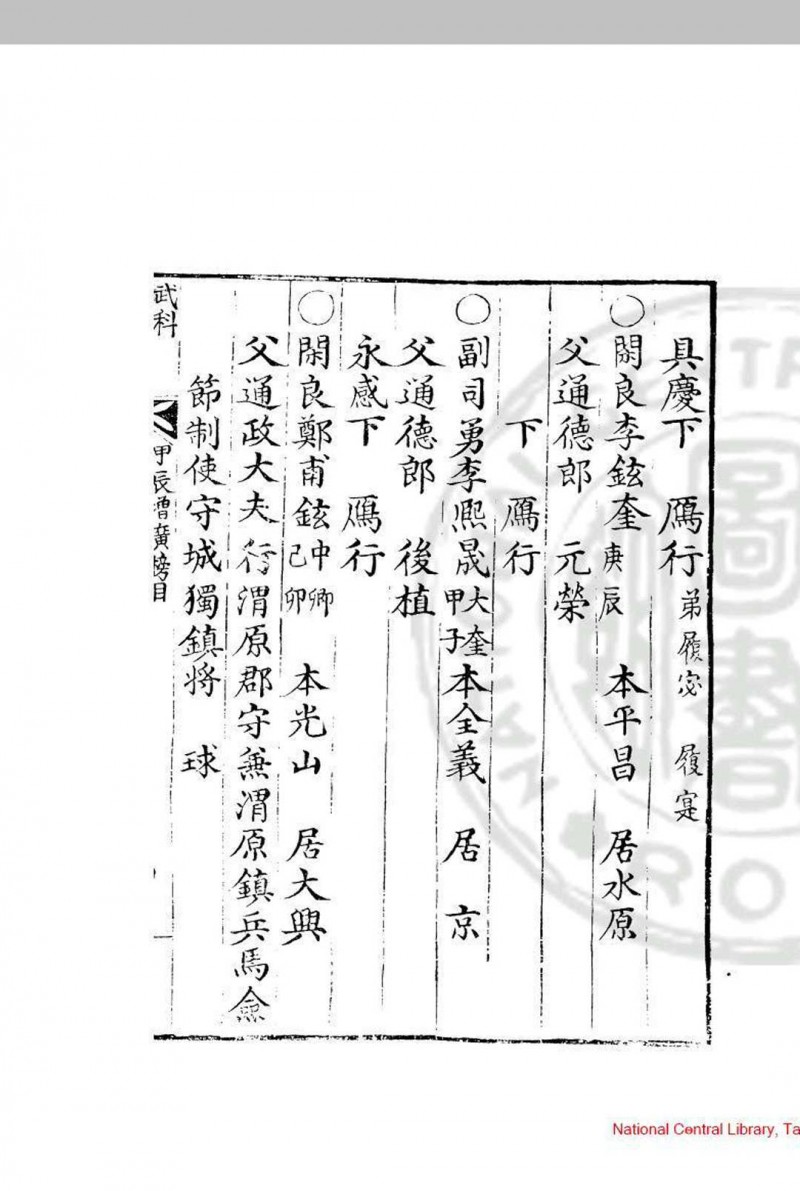 具慶下 鴈行 弟履宓 履寔
○閑良李鉉奎 庚辰 本平昌 居水原
父通德郎 元榮
下 鴈行
○副司勇李熙晟 大奎 甲子 本全義 居京
父通德郎 後植
永感下 鴈行
○閑良鄭甫鉉 中卿 己卯 本光山 居大興
父通政大夫行渭原郡守兼渭原鎮兵馬僉
節制使守城獨鎮將 球
武科 甲辰增廣榜目
National Central Library, Ta